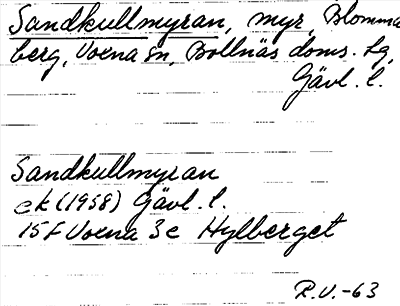 Sandkullmyran, myr, Blomma
berg, Voxna sn, Bollnäs doms. sg,
Gävl. l.
Sandkullmyran
ek (1958) Gävl. l.
15F Voxna 3e Hylberget
R.V.-63